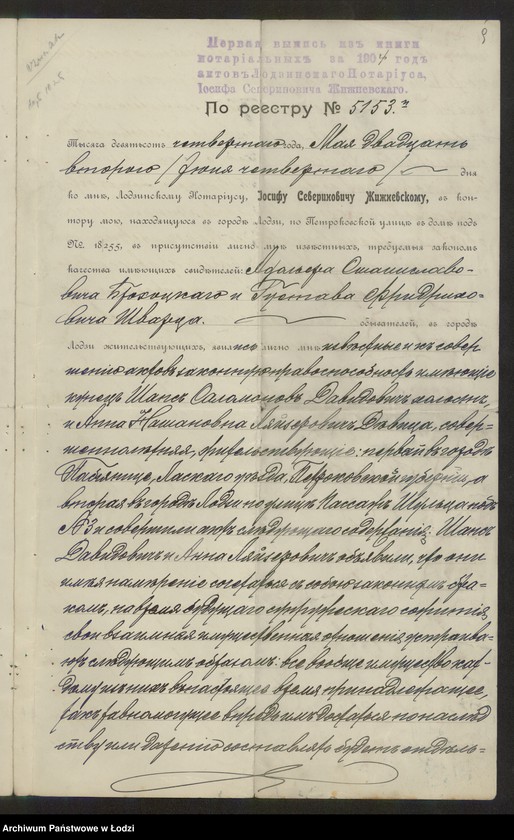 9
Первая выпись изъ книги
нотаріальныхъ за 1904 годъ
актовъ Лодзинскаго Нотаріуса,
Іосифа Севериновича Жижневскаго.
По реестру № 5153.
Тысяча девятьсотъ четвертаго года, Мая двадцать
второго / Іюня четвертаго / дня
ко мнѣ, Лодзинскому Нотаріусу, Іосифу Севериновичу Жижневскому, въ кон-
тору мою, находящуюся въ городѣ Лодзи, по Петроковской улицѣ въ домѣ подъ
№ 18255, въ присутствіи лично мнѣ извѣстныхъ, требуемыя закономъ
качества имѣющихъ свидѣтелей: Адольфа Станиславо-
вича и Густава Фридрихо-
вича Шварца. обывателей, въ городѣ
Лодзи жительствующихъ, явились лично мнѣ извѣстные и къ совер-
шенію актовъ законную правоспособность имѣющіе
купецъ Шансъ Саламоновъ Давидовичъ холостъ,
и Анна Натановна Ляйзеровичъ дѣвица, совер-
шеннолѣтняя, жительствующіе: первый въ городѣ
Пабянице, Ласкаго уѣзда, Петроковской губерніи, а
вторая въ городѣ Лодзи по улицѣ Пассажъ Шульца подъ
№ 3 и совершили актъ слѣдующаго содержанія: Шансъ
Давидовичъ и Анна Ляйзеровичъ объявили, что они
имѣя намѣреніе сочетаться съ собою законнымъ бра-
комъ, на время будущаго супружескаго сожитія,
свои взаимныя имущественныя отношенія устраива-
ютъ слѣдующимъ образомъ: все вообще имущество каж-
дому изъ нихъ въ настоящее время принадлежащее,
такъ равно могущее впредь имъ достаться по наслѣд
ству или даренію составлять будетъ отдѣль=
Archiwum Państwowe w Łodzi